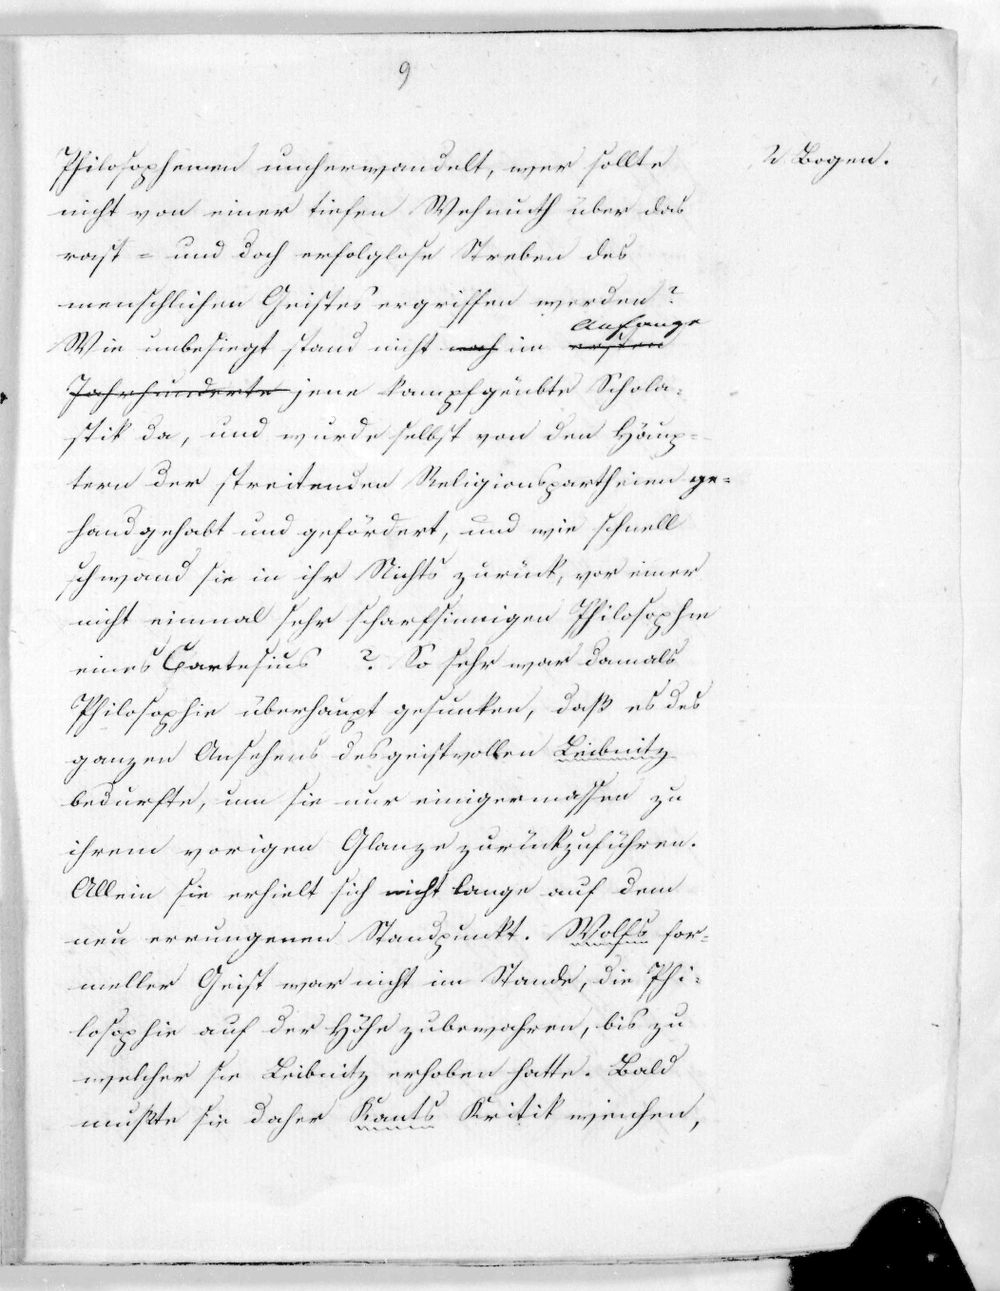 9
2 Bogen.
Philosophemen umherwandelt, wer sollte
nicht von einer tiefen Wehmuth über das
rast = und doch erfolglose Streben des
menschlichen Geistes ergriffen werden?
Anfange
Wie unbesiegt stand nicht noch im ersten
Jahrhunderte jene kampfgeübte Schola=
stik da, und wurde selbst von den Häup=
tern der streitenden Religionspartheien ge=
handgehabt und gefördert, und wie schnell
schwand sie in ihr Nichts zurück, vor einer
nicht einmal sehr scharfsinnigen Philosophie
eines Cartesius ? So sehr war damals
Philosophie überhaupt gesunken, daß es des
ganzen Ansehens des geistvollen Leibnitz
bedurfte, um sie nur einigermassen zu
ihrem vorigen Glanze zurückzuführen.
Allein sie erhielt sich nicht lange auf dem
neu errungenen Standpunkt. Wolfs for=
meller Geist war nicht im Stande, die Phi=
losophie auf der Höhe zu bewahren, bis zu
welcher sie Leibnitz erhoben hatte. Bald
mußte sie daher Kants Kritik weichen,